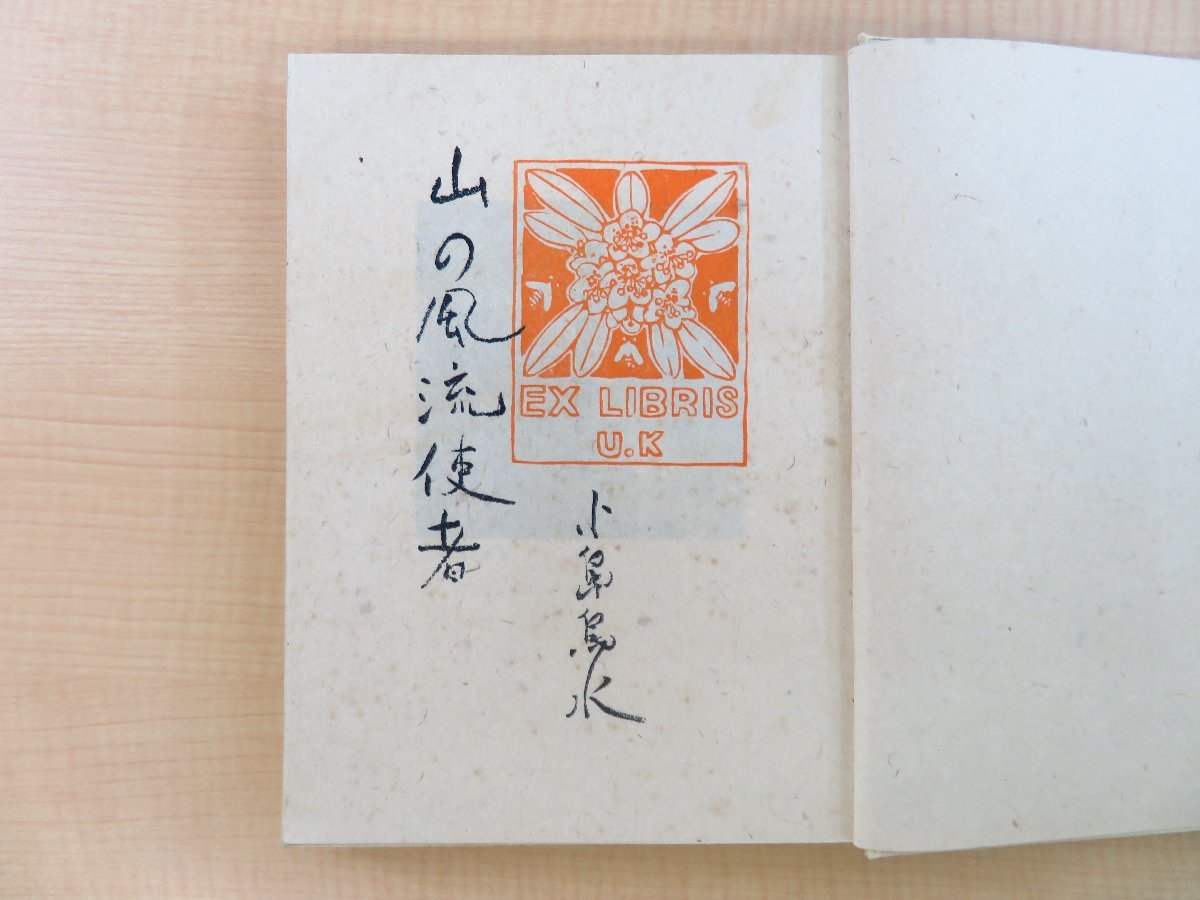 山の風流使者
EX LIBRIS
U.K
小島烏水